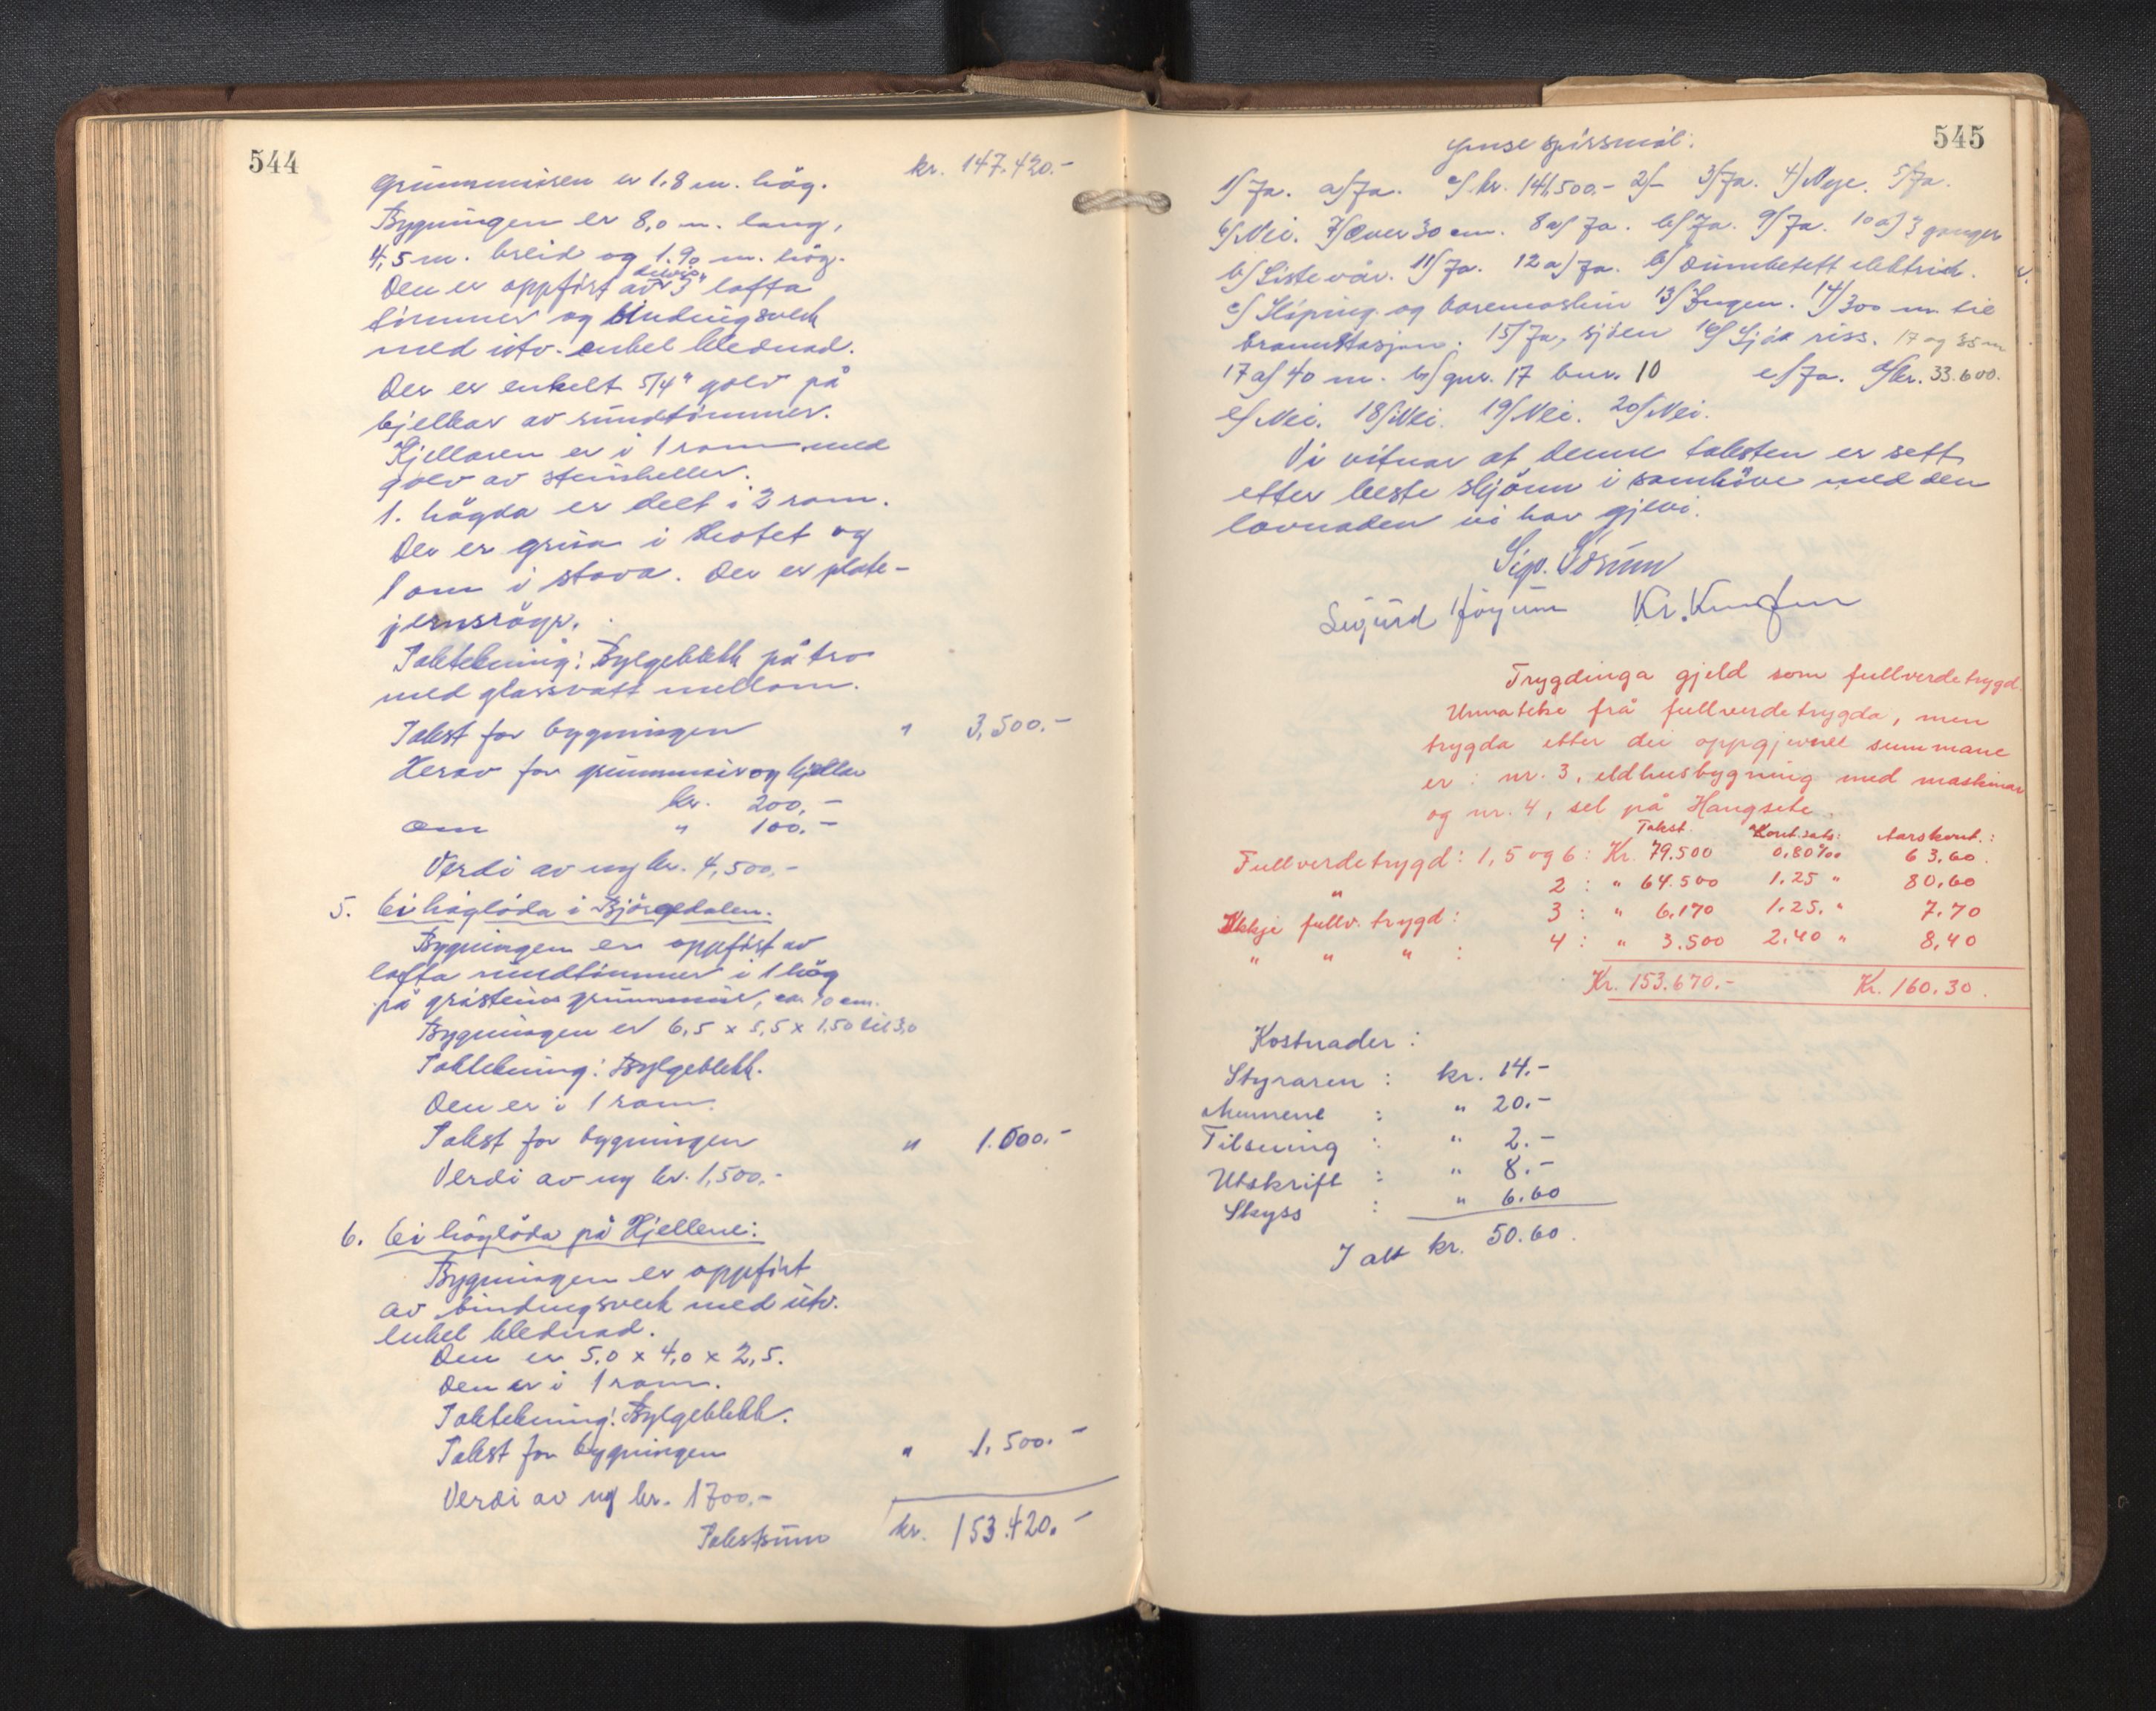 544
kr. 147.420.-
Grunnmuren er 1,8 m. høg.
Bygningen er 8,0 m. lang,
4,5 m. breid og 1.90 m. høg.
delvis
Den er oppført av 5" lafta
timmer og bindingsverk
med utv. enkel klednad.
Der er enkelt 5/4" golv på
bjelkar av rundtimmer.
Kjellaren er i 1 rom med
golv av steinheller.
1. høgda er delt i 2 rom.
Der er grua i kotet og
1 omn i stova. Der er plate-
jernsrøyr.
Taktekning: Bylgeblekk på tro
med glassvatt mellom.
Takst for bygningen " 3,500.-
Herav for grunnmur og kjellar
kr. 200,-
omn " 100.-
Verdi av ny kr. 4,500,-
5. Ei høyløda i Bjørgedalen.
Bygningen er oppført av
lafta rundtimmer i 1 høg
på gråsteins grunnmur, ca. 70 cm.
Bygningen er 6,5 x 5,5 x 1,50 til 3,0
Taktekning: Bylgeblekk.
Den er i 1 rom.
Takst for bygningen " 1.000.-
Verdi av ny kr. 1,500.-
6. Ei høyløda på Hjellene:
Bygningen er oppført
av bindingsverk med utv.
enkel klednad.
Den er 5,0 x 4,0 x 2,5.
Den er i 1 rom.
Taktekning: Bylgeblekk.
Takst for bygningen " 1,500.-
Verdi av ny kr. 1700.-
Takstsum kr. 153.420.-
545
Ymse spørsmål:
1/ Ja. a/ Ja. c/ kr. 141.500.- 2/- 3/ Ja. 4/ Mye. 5/ Ja.
6/ Nei. 7/ Over 30 cm. 8 a/ Ja. b/ Ja. 9/ Ja. 10 a/ 3 gonger
b/ Siste vår. 11/ Ja. 12 a/ Ja. b/ Innebetett elektrisk.
c/ Slåping og boremaskin 13/ Ingen. 14/ 300 m. til
brannstasjon. 15/ Ja, sjøen 16/ Sjå riss. 17 og 35 m
17 a/ 40 m. b/ gnr. 17 bnr. 10 c/ Ja. d/ kr. 33.600.
e/ Nei. 18/ Nei. 19/ Nei. 20/ Nei.
Vi vitnar at denne taksten er sett
etter beste skjønn i samhøve med den
lovnaden vi har gjevi.
Sigv. Sørum
Sigurd Høyum Kr. Knutsen
Trygdinga gjeld som fullverdetrygd.
Unnateke frå fullverdetrygda, men
trygda etter dei oppgjevne summane
er: nr. 3, eldhusbygning med maskinar
og nr. 4, sel på Haugsete.
Takst. Kont.sats: Aarskont.:
Fullverdetrygd: 1, 5 og 6: Kr. 79.500 0,80‰ 63,60.
" 2: " 64.500 1.25 " 80,60
Ikkje fullv. trygd: 3: " 6.170 1.25. " 7.70
" " " : 4: " 3.500 2.40 " 8,40
Kr. 153.670.- Kr. 160.30.
Kostnader:
Styraren: kr. 14.-
Mennene: " 20.-
Tilsening: " 2.-
Utskrift: " 8.-
Skyss: " 6.60
I alt kr. 50.60.